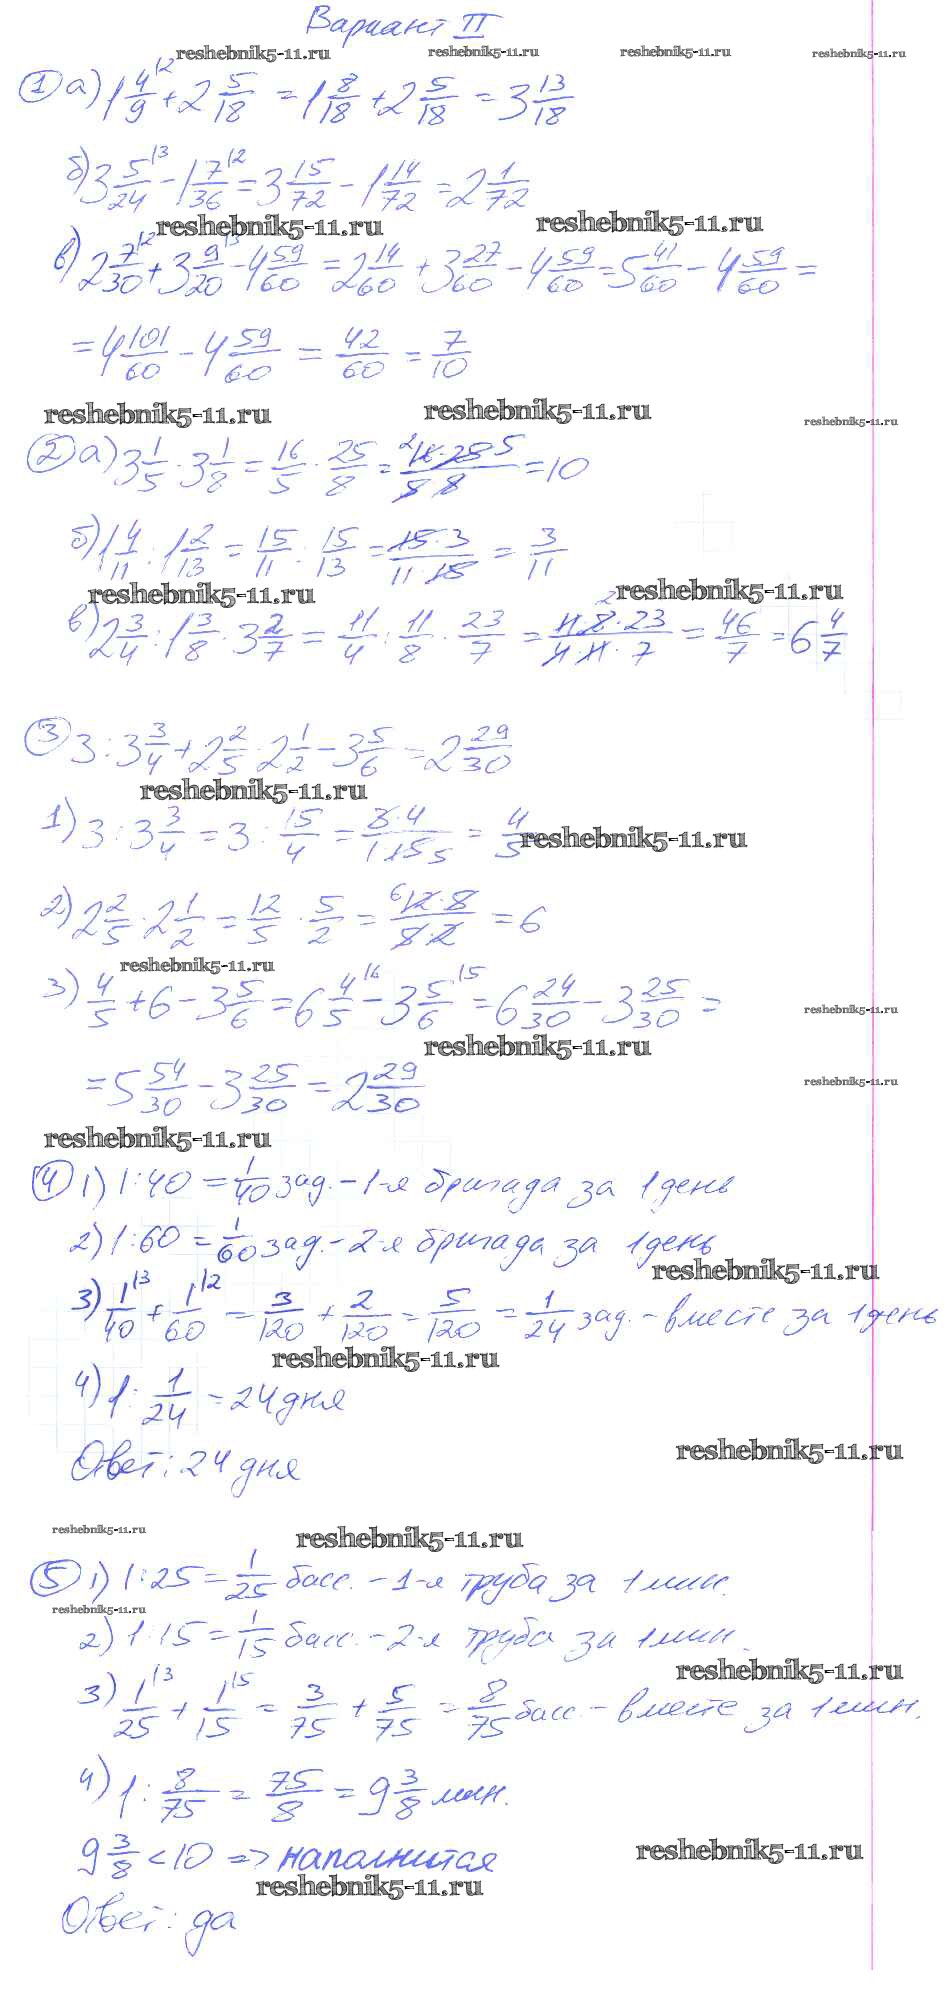 Вариант II
reshebnik5-11.ru reshebnik5-11.ru reshebnik5-11.ru reshebnik5-11.ru
① а) 1 4/9 ^|2 + 2 5/18 = 1 8/18 + 2 5/18 = 3 13/18
б) 3 5/24 ^|3 - 1 7/36 ^|2 = 3 15/72 - 1 14/72 = 2 1/72
reshebnik5-11.ru reshebnik5-11.ru
в) 2 7/30 ^|2 + 3 9/20 ^|3 - 4 59/60 = 2 14/60 + 3 27/60 - 4 59/60 = 5 41/60 - 4 59/60 =
= 4 101/60 - 4 59/60 = 42/60 = 7/10
reshebnik5-11.ru reshebnik5-11.ru reshebnik5-11.ru
② а) 3 1/5 · 3 1/8 = 16/5 · 25/8 = 2 16·25 5 / 5·8 = 10
б) 1 4/11 : 1 2/13 = 15/11 : 15/13 = 15·3 / 11·15 = 3/11
reshebnik5-11.ru reshebnik5-11.ru
в) 2 3/4 : 1 3/8 · 3 2/7 = 11/4 : 11/8 · 23/7 = 11·8·23 / 4·11·7 = 46/7 = 6 4/7
③ 3 : 3 3/4 + 2 2/5 · 2 1/2 - 3 5/6 = 2 29/30
reshebnik5-11.ru
1) 3 : 3 3/4 = 3 : 15/4 = 3·4 / 1·15 5 = 4/5
reshebnik5-11.ru
2) 2 2/5 · 2 1/2 = 12/5 · 5/2 = 6 12·5 / 5·2 = 6
reshebnik5-11.ru
3) 4/5 + 6 - 3 5/6 = 6 4/5 ^|6 - 3 5/6 ^|5 = 6 24/30 - 3 25/30 =
reshebnik5-11.ru
reshebnik5-11.ru
= 5 54/30 - 3 25/30 = 2 29/30
reshebnik5-11.ru
reshebnik5-11.ru
④ 1) 1:40 = 1/40 зад. - 1-я бригада за 1 день
2) 1:60 = 1/60 зад. - 2-я бригада за 1 день
reshebnik5-11.ru
3) 1/40 ^|3 + 1/60 ^|2 = 3/120 + 2/120 = 5/120 = 1/24 зад. - вместе за 1 день
reshebnik5-11.ru
4) 1 : 1/24 = 24 дня
reshebnik5-11.ru
Ответ: 24 дня
reshebnik5-11.ru reshebnik5-11.ru
⑤ 1) 1:25 = 1/25 басс. - 1-я труба за 1 мин.
reshebnik5-11.ru
2) 1:15 = 1/15 басс. - 2-я труба за 1 мин.
reshebnik5-11.ru
3) 1/25 ^|3 + 1/15 ^|5 = 3/75 + 5/75 = 8/75 басс. - вместе за 1 мин.
4) 1 : 8/75 = 75/8 = 9 3/8 мин.
9 3/8 < 10 => наполнится
reshebnik5-11.ru
reshebnik5-11.ru
Ответ: да